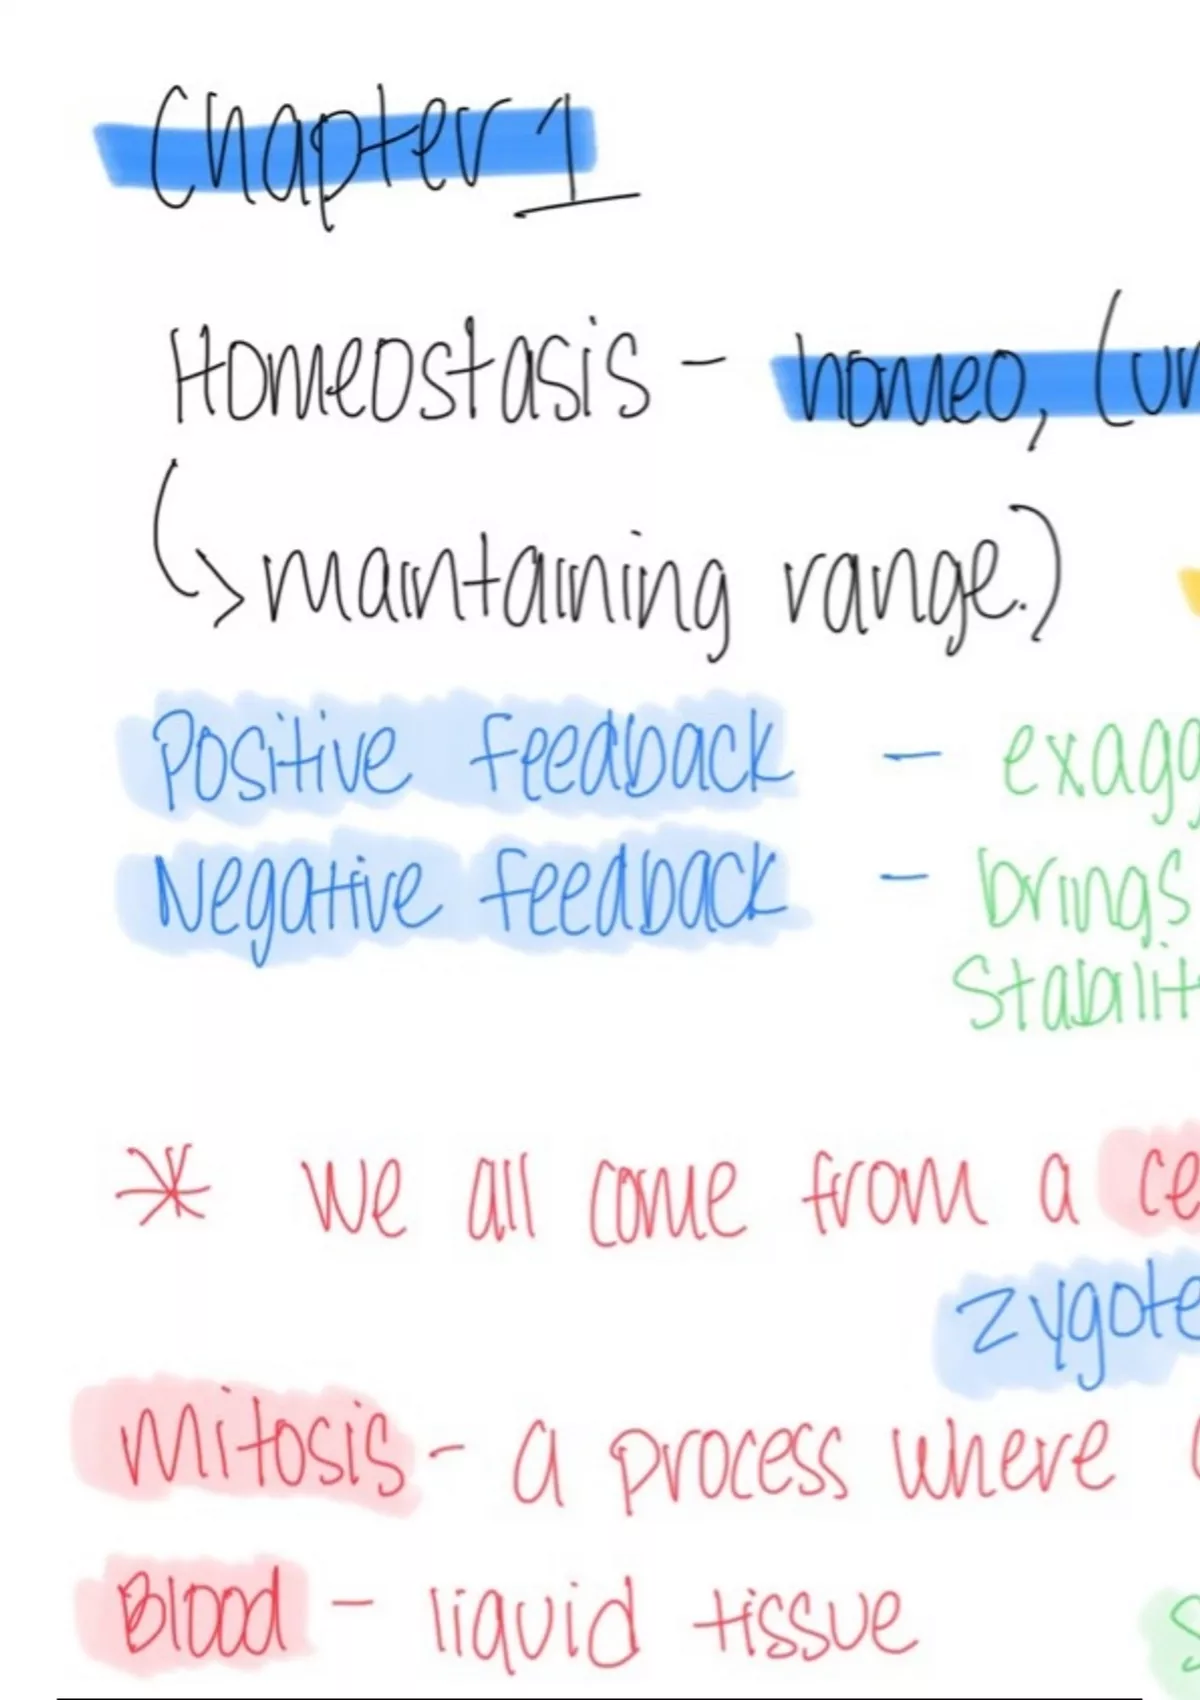 Chapter 1
Homeostasis - homeo, (un
(→ maintaining range.)
Positive feedback - exagg
Negative feedback - brings
Stabilit
* we all come from a ce
zygote
Mitosis - a process where
Blood - liquid tissue